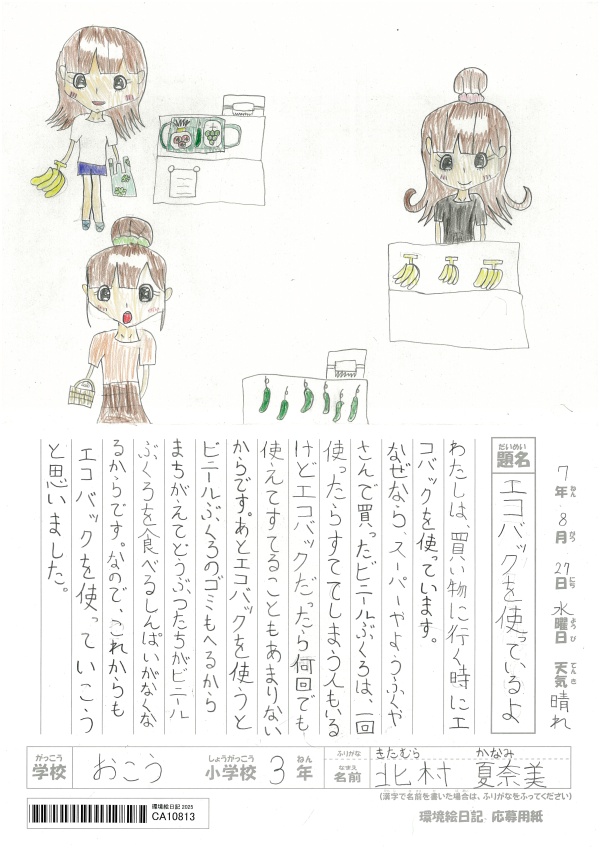 7年 8月 27日 水曜日 天気 晴れ
ねん がつ にち ようび てんき
だいめい
題名 エコバックを使っているよ
わたしは、買い物に行く時にエ
コバックを使っています。
なぜなら、スーパーやようふくや
さんで買ったビニールぶくろは、一回
使ったらすててしまう人もいる
けどエコバックだったら何回でも
使えてすてることもあまりない
からです。あとエコバックを使うと
ビニールぶくろのゴミもへるから
まちがえてどうぶつたちがビニール
ぶくろを食べるしんぱいがなくな
るからです。なので、これからも
エコバックを使っていこう
と思いました。
がっこう しょうがっこう ねん
学校 おこう 小学校 3年
ふりがな きたむら かなみ
なまえ
名前 北村 夏奈美
(漢字で名前を書いた場合は、ふりがなをふってください)
環境絵日記 2025
CA10813
環境絵日記 応募用紙